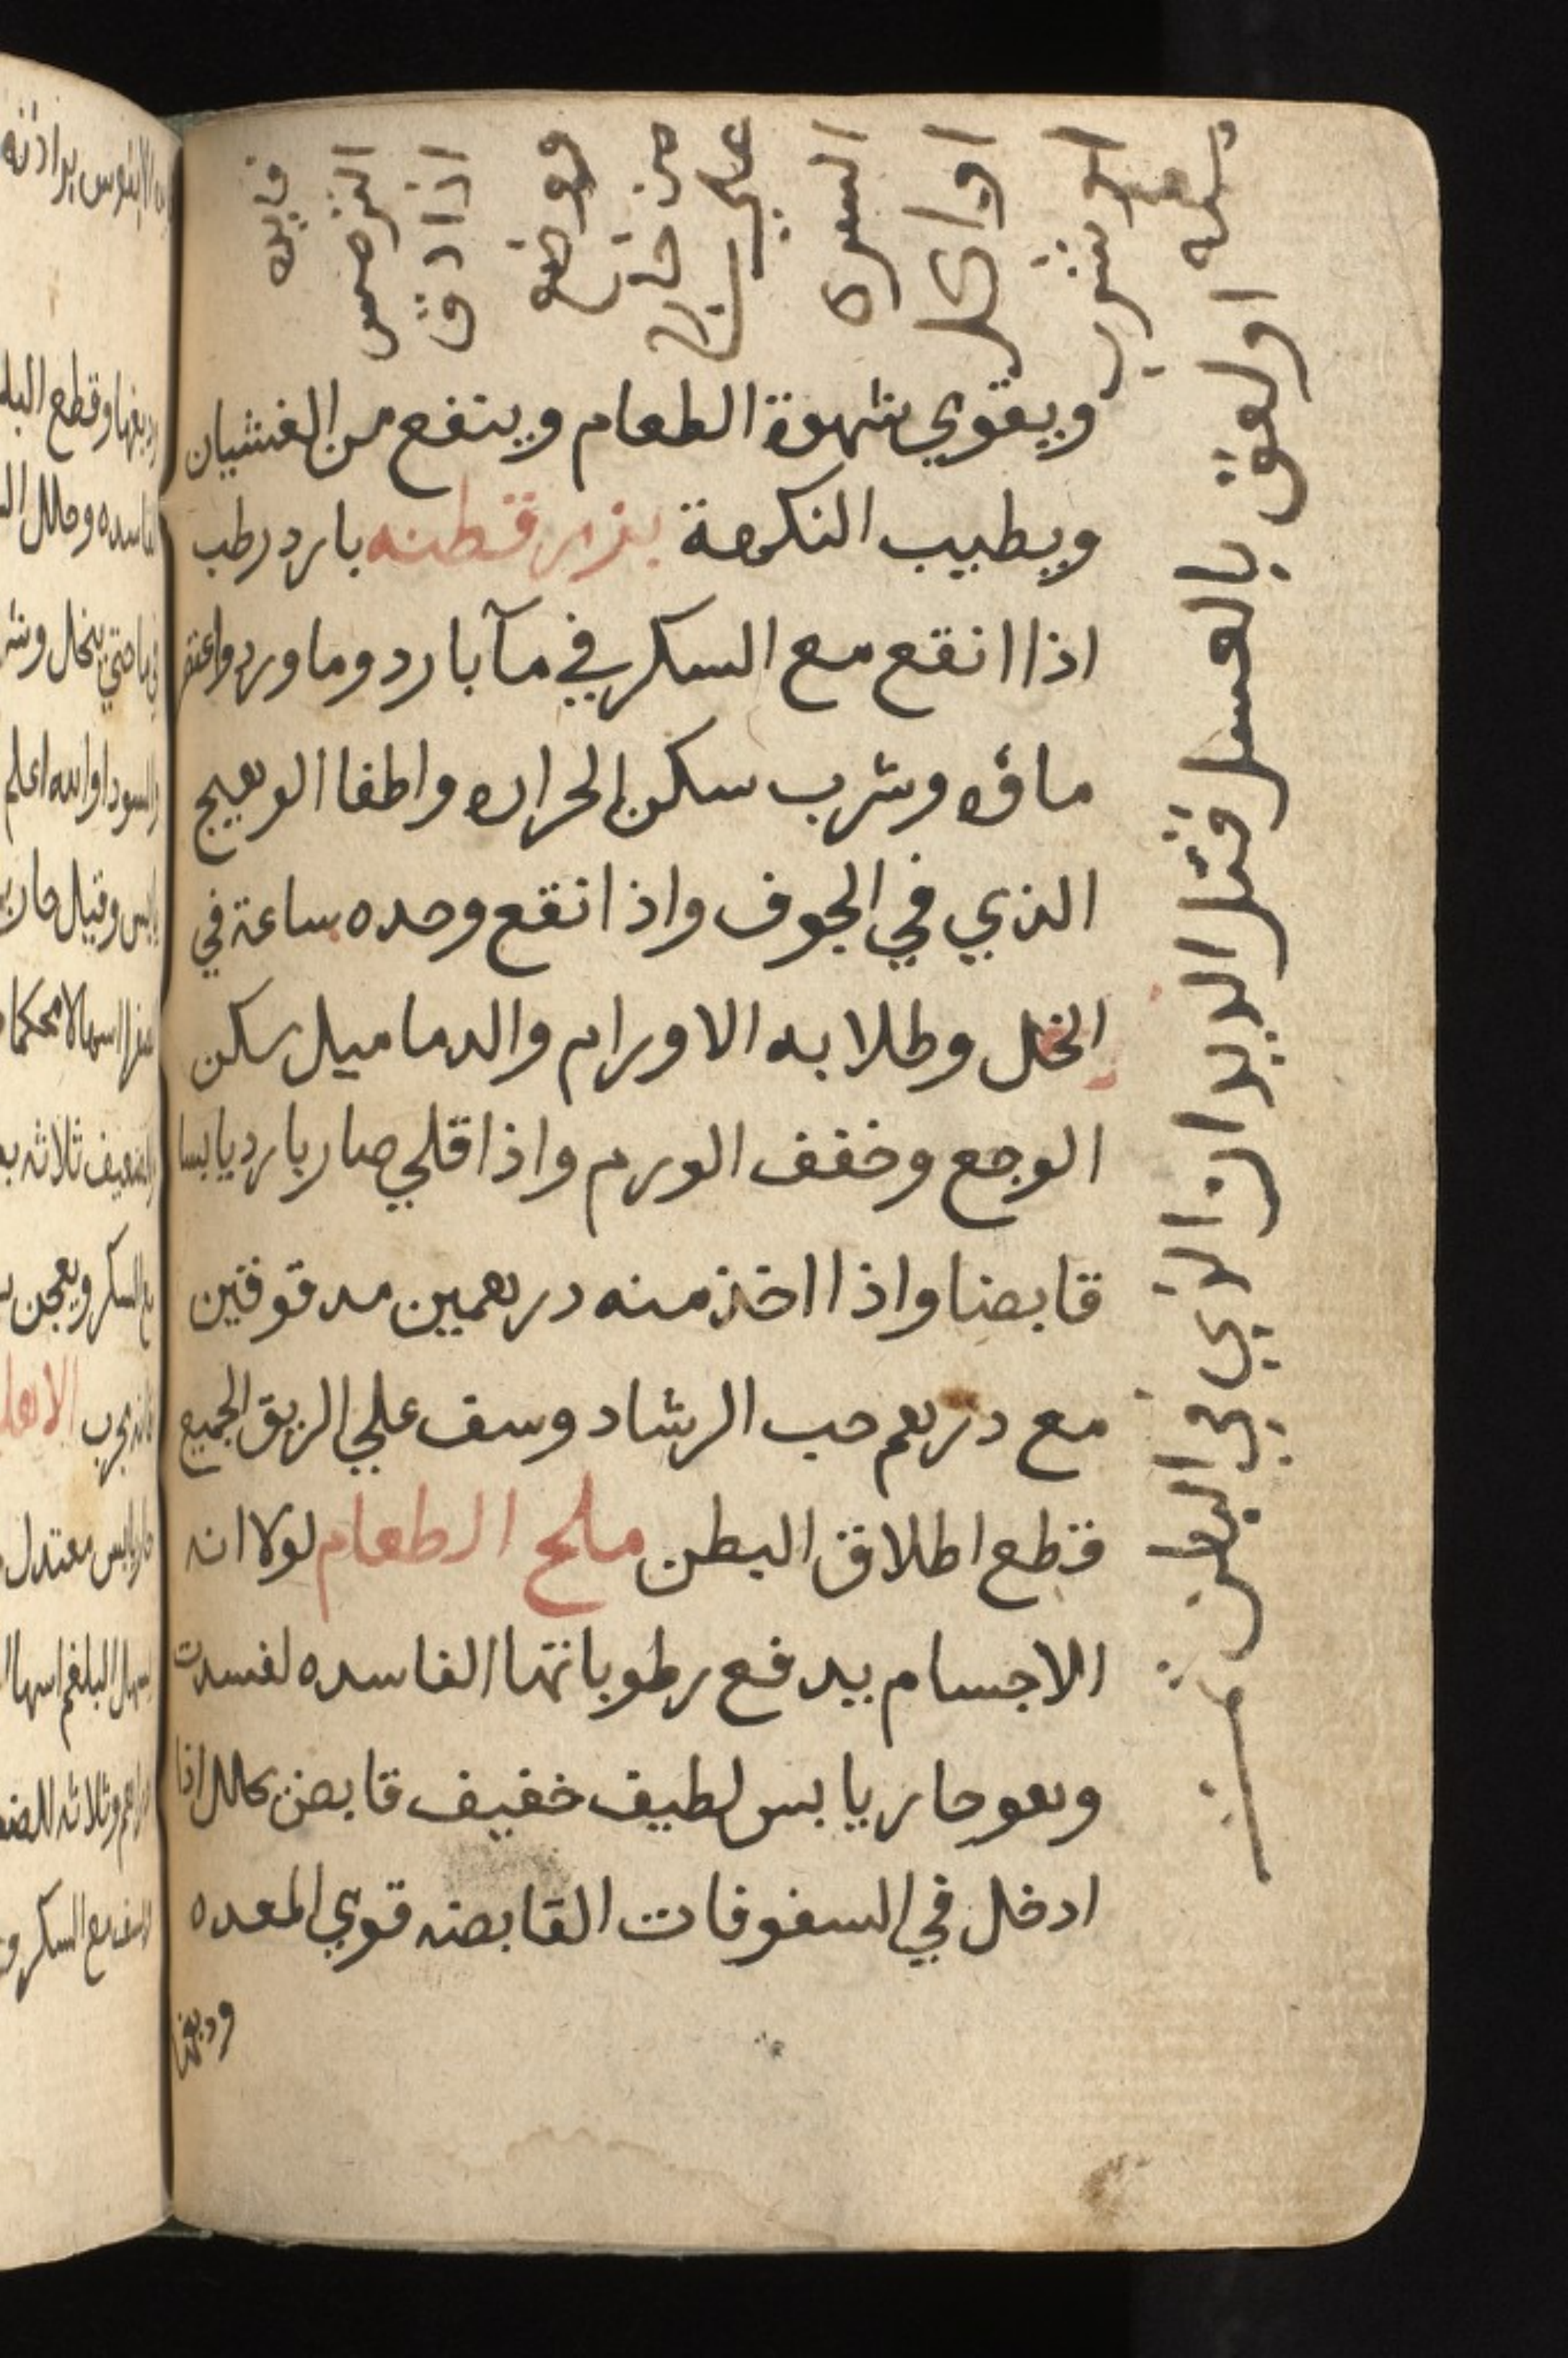 فايده
الترمس
اذا دق
ووضع
من خارج
علي
السره
او اكل
او شرب
منه
او لعق بالعسل قتل الديدان الذي في البطن
ويقوي شهوة الطعام وينفع من الغشيان
ويطيب النكهة بزر قطنه بارد رطب
اذا انقع مع السكر في مآ بارد وما ورد واعتصر
ماؤه وشرب سكن الحراره واطفا الوهيج
الذي في الجوف واذا نقع وحده ساعة في
الخل وطلا به الاورام والدماميل سكن
الوجع وخفف الورم واذا قلي صار بارد يابسا
قابضا واذا اخذ منه درهمين مدقوقين
مع درهم حب الرشاد وسف علي الريق الجميع
قطع اطلاق البطن ملح الطعام لولا انه
الاجسام يدفع رطوباتها الفاسده لفسدت
وهو حار يابس لطيف خفيف قابض محلل اذا
ادخل في السفوفات القابضه قوي المعده
ودبغها